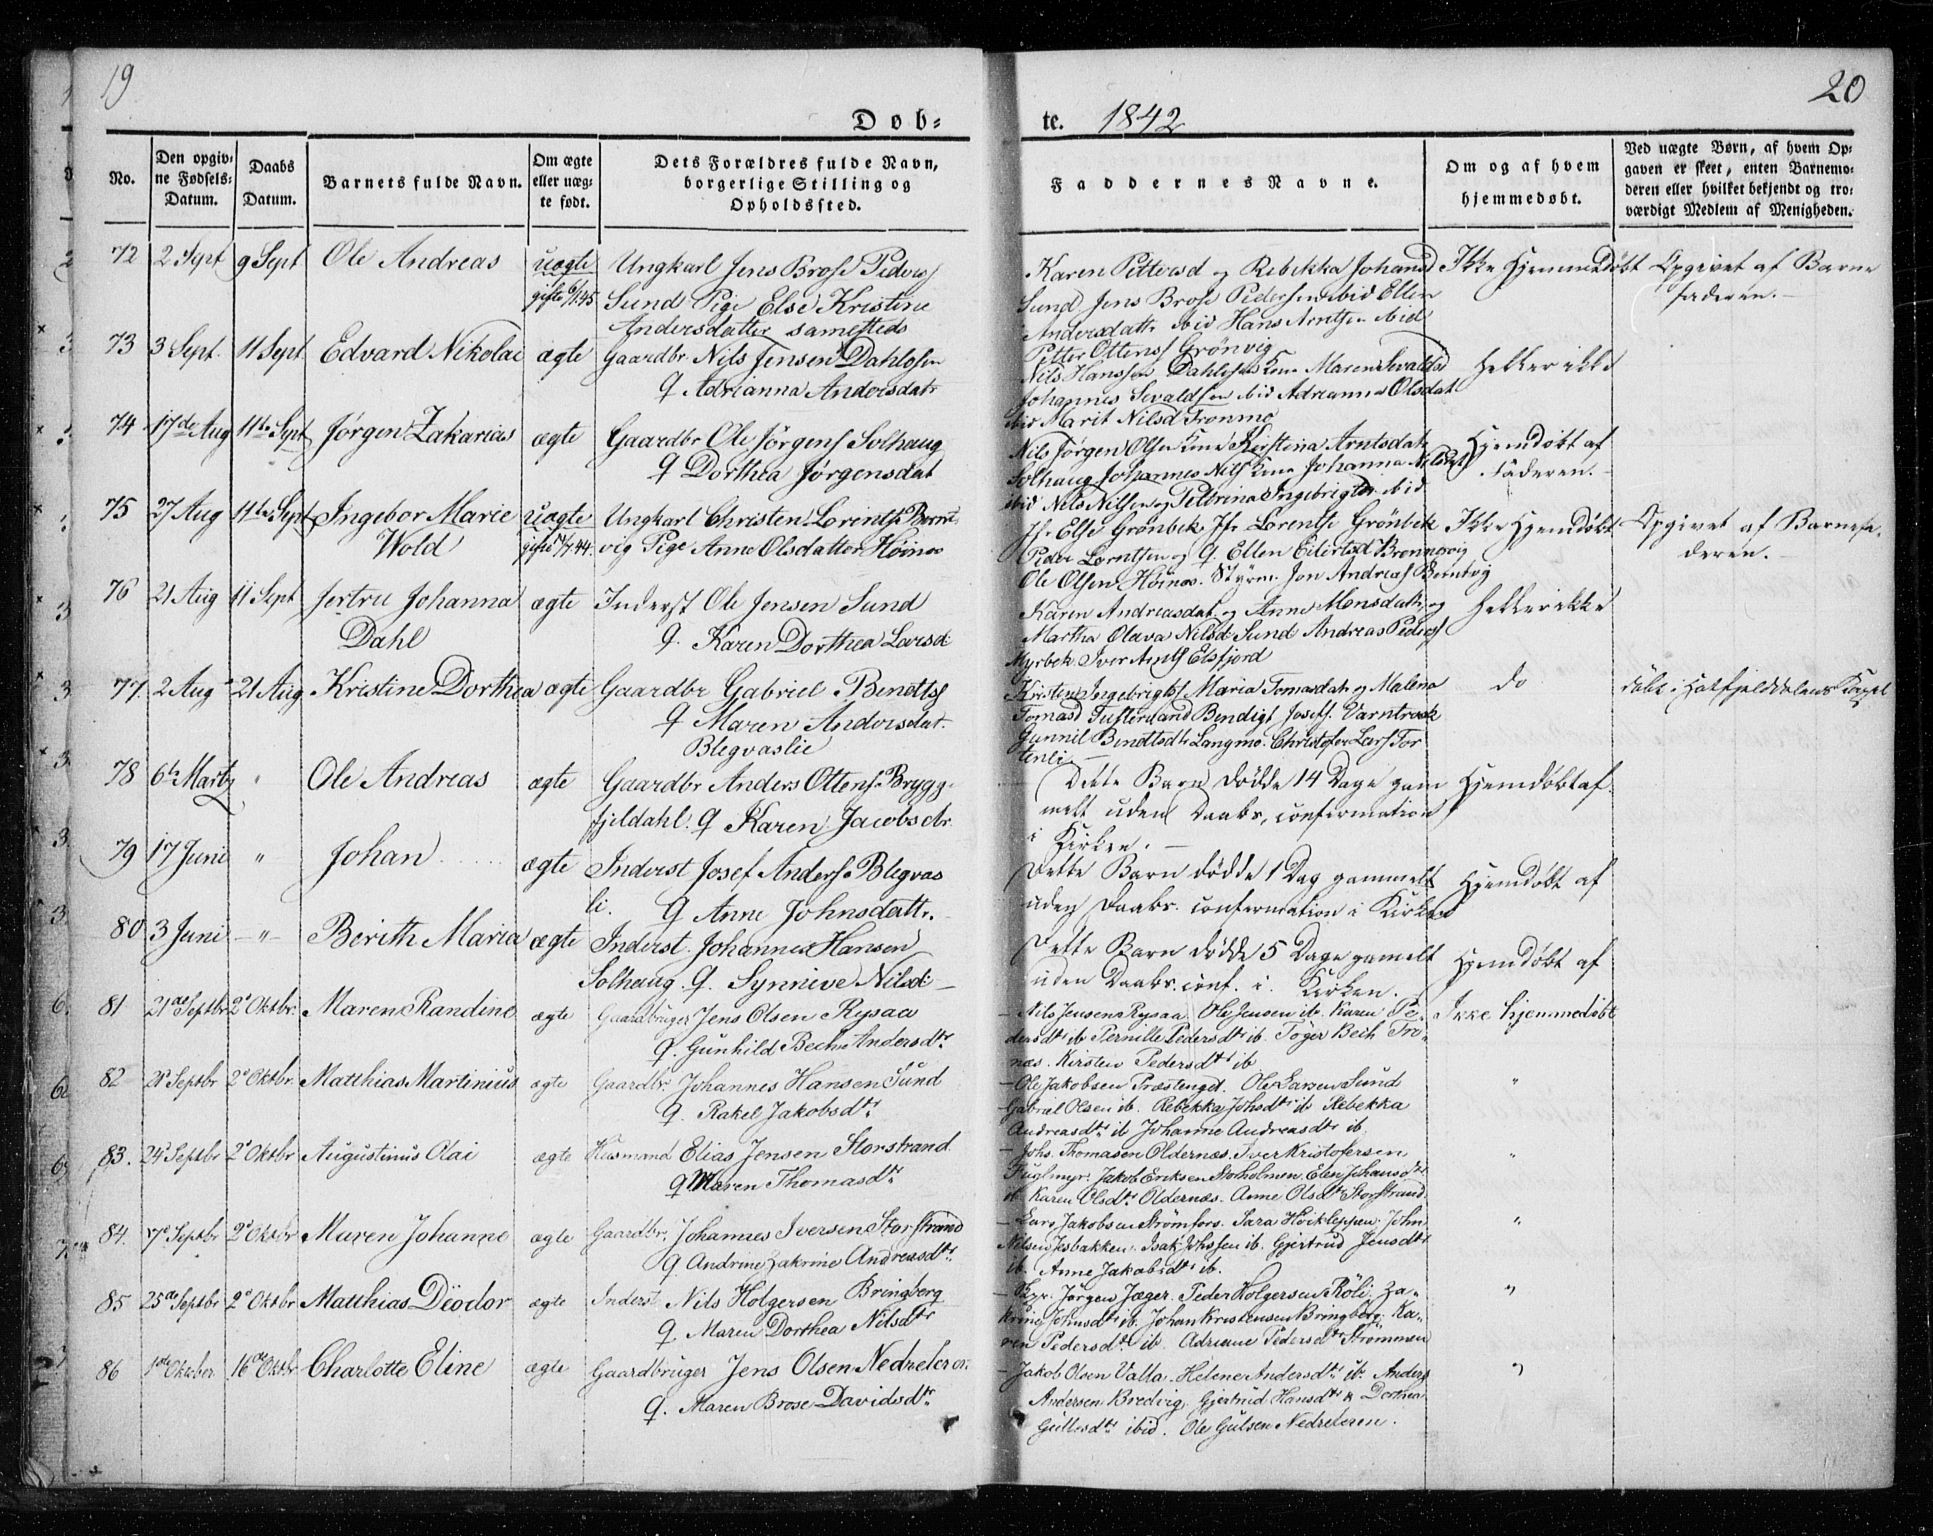 19
20
Døb-
te. 1842
No.
Den opgiv-
ne Fødsels-
Datum.
Daabs
Datum.
Barnets fulde Navn.
Om ægte
eller uæg-
te født.
Dets Forældres fulde Navn,
borgerlige Stilling og
Opholdssted.
Faddernes Navne.
Om og af hvem
hjemmedøbt.
Ved uægte Børn, af hvem Op-
gaven er skeet, enten Barnemo-
deren eller hvilket bekjendt og tro-
værdigt Medlem af Menigheden.
72 2 Sept 9 Sept Ole Andreas uægte Ungkarl Jens Brose Peders
gifte 6/1 45 Sund Pige Else Kristine
Andersdatter samesteds
Karen Pettersd og Rebekka Johansd
Sund Jens Brose Pedersen ibid Ellen
Andersdatr ibid Hans Arntsen ibid
Petter Ottens Grönvig
Ikke Hjemmedøbt
Opgivet af Barne
faderen.
73 3 Sept. 11 Sept Edvard Nikolai ægte Gaardbr. Nils Jensen Dahlosen
q Adrianna Andersdatr
Nils Hanssen Dahlosen Kone Maren Sevaldsd
Johannes Sevaldsen ibid Adrianna Olsdatr
ibid Marit Nilsd Fronmo
heller ikke
74 17de Aug 11te Sept Jørgen Zakarias ægte Gaardbr Ole Jørgens Solhaug
q Dorthea Jørgensdat
Nils Jörgen Olsen Kone Kirstina Arntsdatr
Solhaug Johannes Nils Kone Johanna Nilsdat
ibid Nils Nilsen og Pelbrina Ingebrigtd ibid
Hjemdøbt af
Faderen.
75 27 Aug 11te Sept Ingebor Marie uægte Ungkarl Christen Lorents Bernt
Wold gifte 14/7 44. vig Pige Anne Olsdatter Höinæs
Jfr. Else Grönbek Jfr Lorentse Grönbek
Peder Lorntsen og q. Ellen Eilertsd Brennesvig
Ole Olsen Höinæs. Styrm. Jon Andreas Berntvig
Ikke Hjemdøbt
Opgivet af Barnefa-
deren.
76 21 Aug 11 Sept Jertru Johanna ægte Inderst Ole Jensen Sund
Dahl q. Karen Dorthea Larsd
Karen Andreasdat. og Anne Monsdatr. og
Martha Olava Nilsd Sund Andreas Peders
Myrbek Iver Arnts Elsfjord
heller ikke
77. 2 Aug 21 Aug Kristine Dorthea ægte Gaardbr Gabriel Bendts
q Maren Andersdat.
Blegvaslie
Kristen Ingebrigts Maria Tomasdatr og Malena
Tomasd Tusteraand Bendigt Josefs. Varntresk
Gunnil Bendtsdtr Langmo. Christofer Lars For
tenli.
do
döbt i Hatfjelddalens Kapel
78 6te Marts " Ole Andreas ægte Gaardbr Anders Ottens Brygg-
fjeldahl. q Karen Jacobsdtr.
Dette Barn dödde 14 Dage gam
melt uden Daabs, confirmation
i Kirken.
Hjemdøbt af
79 17 Juni " Johan ægte Inderst Josef Anders Blegvas
li. q Anne Johnsdattr.
Dette Barn dødde 1 Dag gammelt
uden Daabs. confirmation i Kirken
Hjemdøbt af
80 3 Juni " Berith Maria ægte Inderst. Johannes Hansen
Solhaug. q. Synnive Nilsd
Dette Barn dödde 5 Dage gamelt
uden Daabs. conf. i. Kirken.
Hjemdøbt af
81 21de Septbr 2de Oktbr. Maren Randine ægte Gaardbruger Jens Olsen Rysaa
q. Gunhild Bech Andersdtr
Nils Jensen Rysaa Ole Jensen ib. Karen Pe-
dersdtr ib Pernille Pedersdtr ib. Töger Bech Fro-
næs. Kirsten Pedersdtr ib
Ikke hjemmedöbt
82 28 Septbr 2de Oktbr. Matthias Martinius ægte Gaardbr. Johannes Hansen Sund
q. Rakel Jakobsdtr
Ole Jakobsen Præstenget. Ole Larsen Sund
Gabriel Olsen ib. Rebekka Johsdtr ib Rebekka
Andreasdtr ib Johanne Andreasdtr ib.
"
83. 24de Septbr 2de Oktbr Augustinus Olai ægte Husmand Elias Jensen Storstrand
q. Maren Thomasdtr
Johs. Thomasen Oldernæs. Iver Kristofersen
Fuglmyr. Jakob Eriksen Storholmen. Elen Johansdtr
ib Karen Olsdtr Oldernæs. Anne Olsdtr Storstrand.
"
84. 7de Septbr 2de Oktbr Maren Johanne ægte Gaardbr. Johannes Iversen Storstrand
q. Andrine Zakrine Andreasdtr
Lars Jakobsen Strömfors. Sara Höikleppen. John
Nilsen Jesbakken. Isak Johssen ib. Gjertrud Jensdtr
ib. Anne Jakobsdtr ib.
"
85 25de Septbr 2de Oktbr Matthias Diodor ægte Inderst Nils Holgersen Bringberg
q. Maren Dorthea Nilsdtr
Jörgen Jæger. Peder Holgersen Röli. Za-
krine Johnsdtr ib. Johan Kristensen Bringberg. Ka-
ren Pedersdtr ib. Adriane Pedersdtr Strømmen
"
86 1ste Oktober 16de Oktbr Charlotte Eline ægte Gaardbruger Jens Olsen Nedreleren.
q. Maren Brose Davidsdtr
Jakob Olsen Valla. Helene Andersdtr ib. Anders
Andersen Bredvig. Gjertrud Hansdtr & Dorthea
Gullesdtr ibid. Ole Gulsen Nedreleren.
"